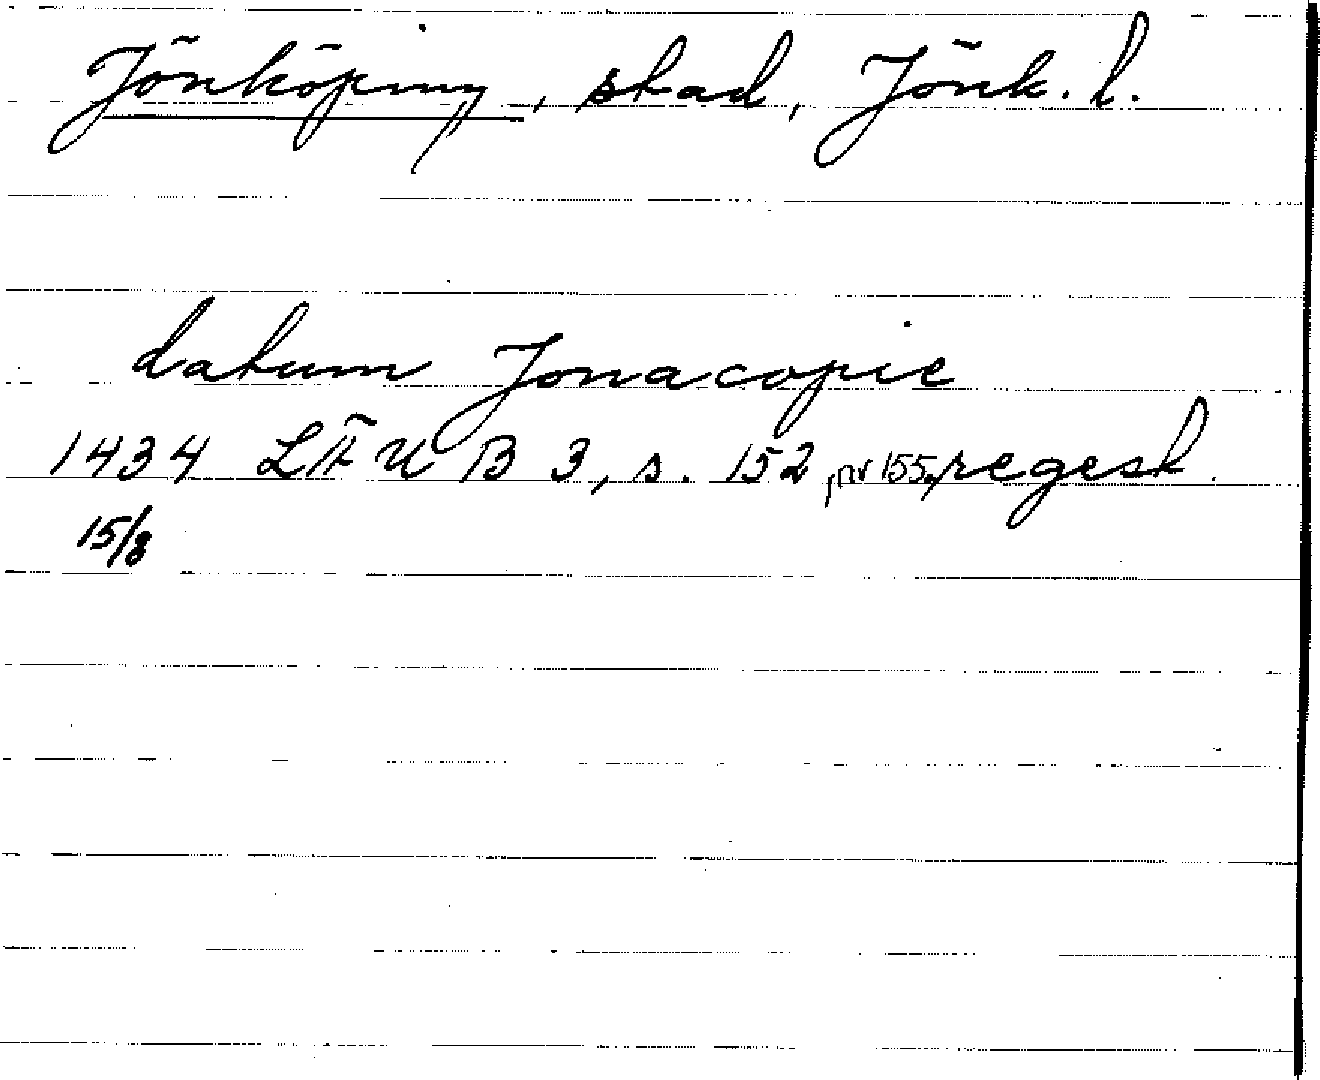 Jönköping, stad, Jönk. l.
datum Jonacopie
1434 LÄUB 3, s. 152, nr 155, regest.
15/8